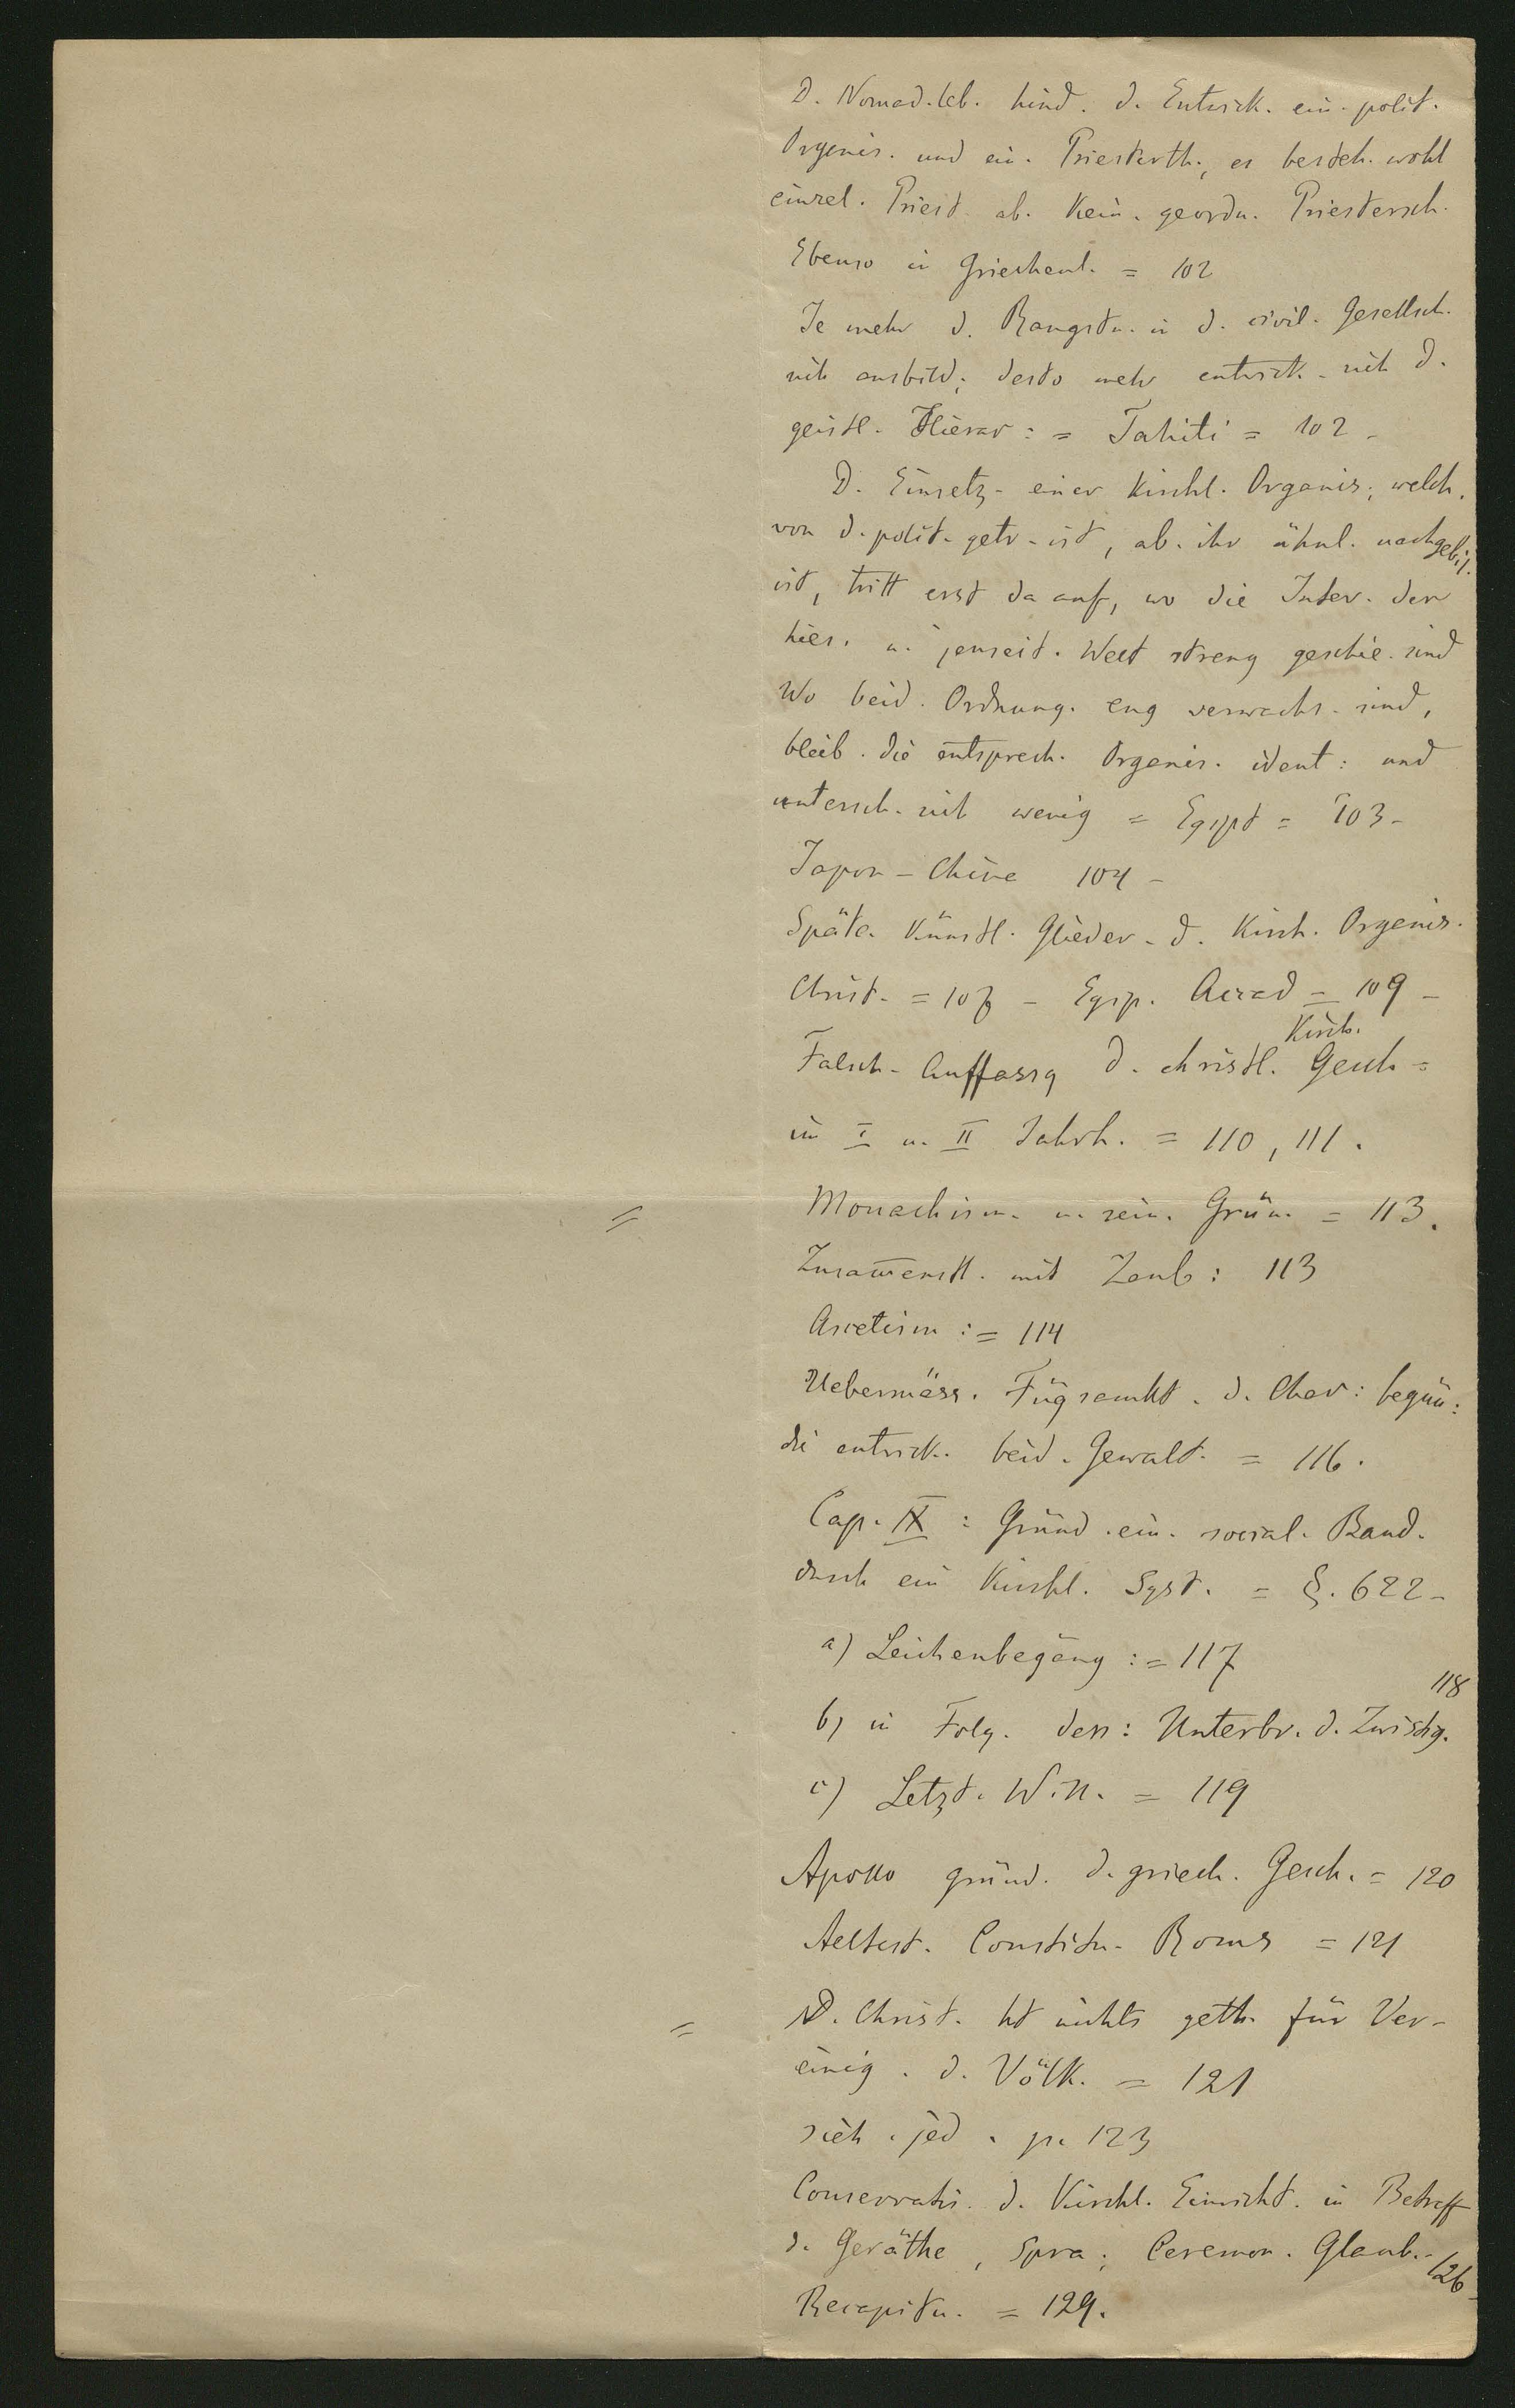 D. Nomad. leb. hind. d. Entwick. ein. polit.
Organis. und ein. Priesterth., es besteh. wohl
einzel. Priest. ab. kein. geordn. Priestersch.
Ebenso in Griechenl. = 102
Je mehr d. Rangstu. in d. civil. Gesellsch.
sich ausbild; desto mehr entwick. sich d.
geistl. Hierar: = Tahiti = 102 -
D. Einsetz. einer kirchl. Organis; welch.
von d. polit. getr. ist, ab. ihr ähnl. nachgebil.
ist, tritt erst da auf, wo die Inter. der
hies. u. jenseit. Welt streng geschie. sind
Wo beid. Ordnung. eng verwachs. sind,
bleib. die entsprech. Organis. ident: und
untersch. sich wenig = Egypt = 103 -
Japon - Chine 104 -
Späte. Künstl. Glieder. d. Kirch. Organis.
Christ. = 107 - Egyp. = 109 -
Kirch.
Falsch. Auffassg d. christl. Gesch =
im I u. II Jahrh. = 110, 111.
= Monachism. u. sein. Grün. = 113.
Zusam̅enst. mit Zaub: 113
Ascetism: = 114
Uebermäss. Fügsamkt. d. Char: begün:
die entwick. beid. Gewalt. = 116.
Cap. IX: Gründ. ein. social. Band.
durch ein Kirchl. Syst. = §. 622 -
a) Leichenbegäng: = 117
118
b) in Folg. dess: Unterbr. d. Zwistig.
c) Letzt. Will. = 119
Apollo gründ. d. griech. Gesch. = 120
Aeltest. Constitu. Roms = 121
= D. Christ. ht nichts geth. für Ver-
einig. d. Völk. = 121
sieh. jed. p. 123
Conservatis. d. Kirchl. Einricht. in Betreff
d. Geräthe, Spra; Ceremon. Glaub. - 126 -
Recapitu. = 129.